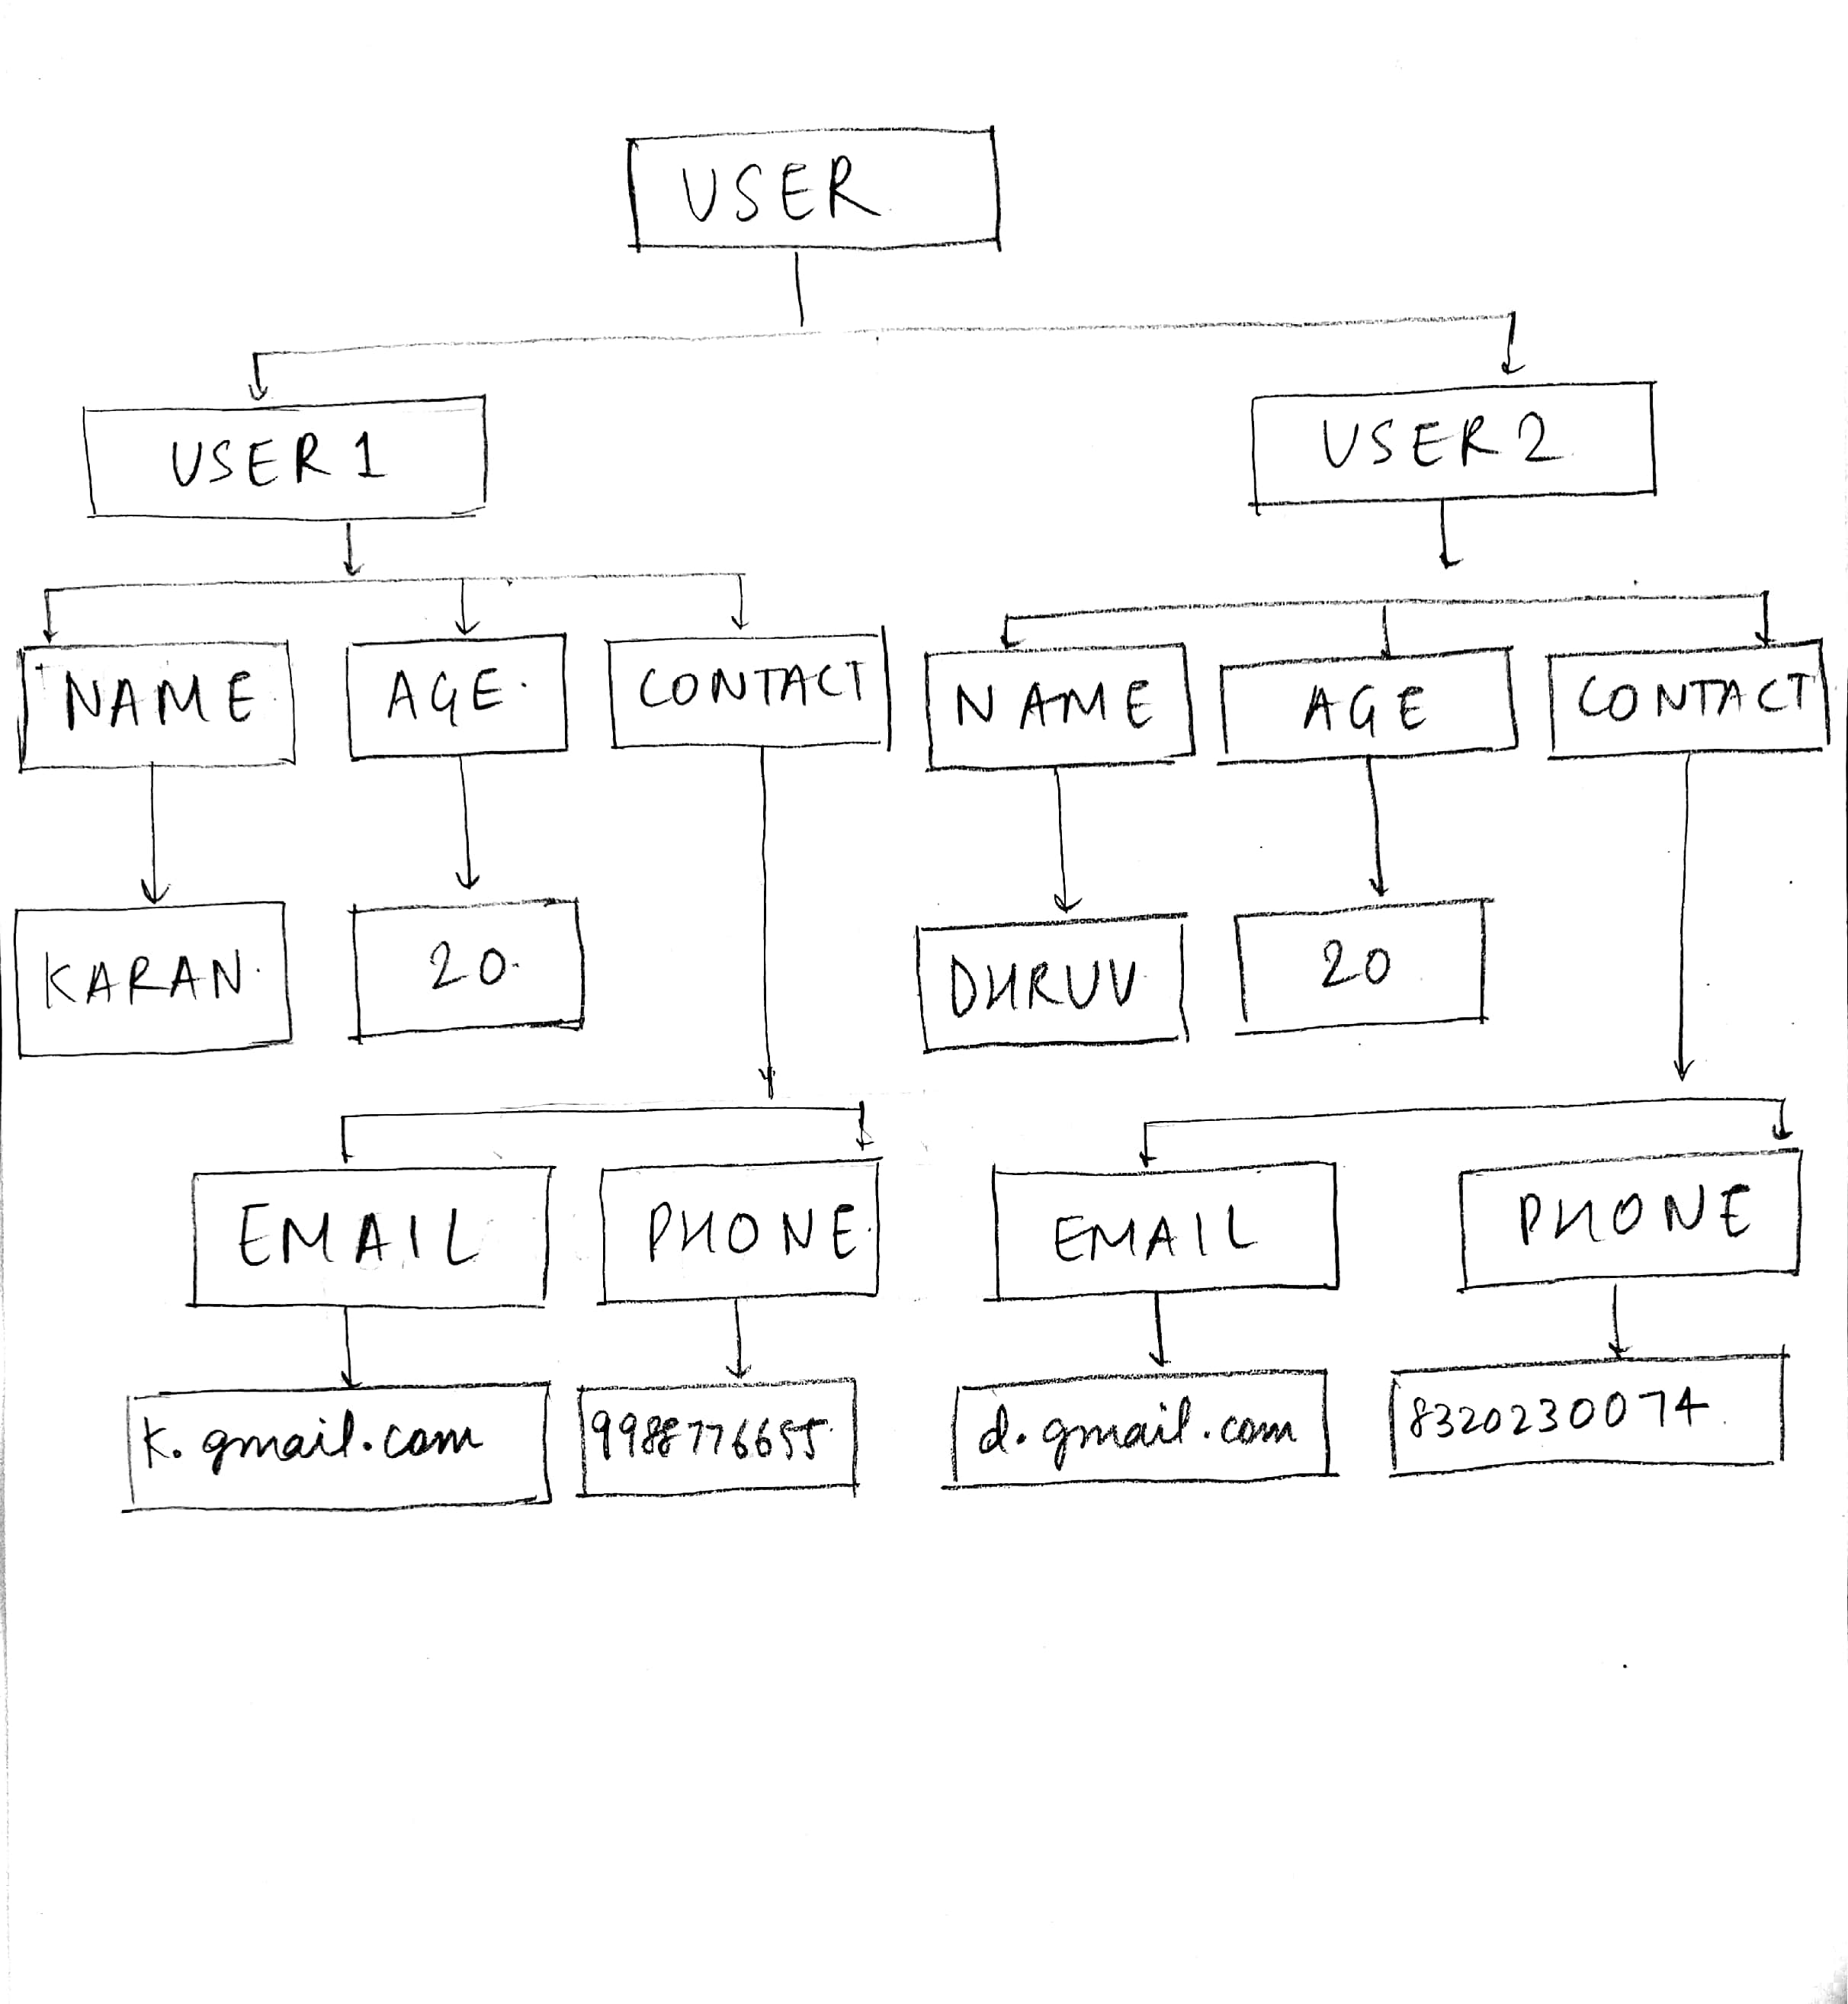 USER
USER 1
USER 2
NAME
AGE.
CONTACT
NAME
AGE
CONTACT
KARAN.
20.
DHRUV
20
EMAIL
PHONE.
EMAIL
PHONE
k.gmail.com
9988776655.
d.gmail.com
8320230074